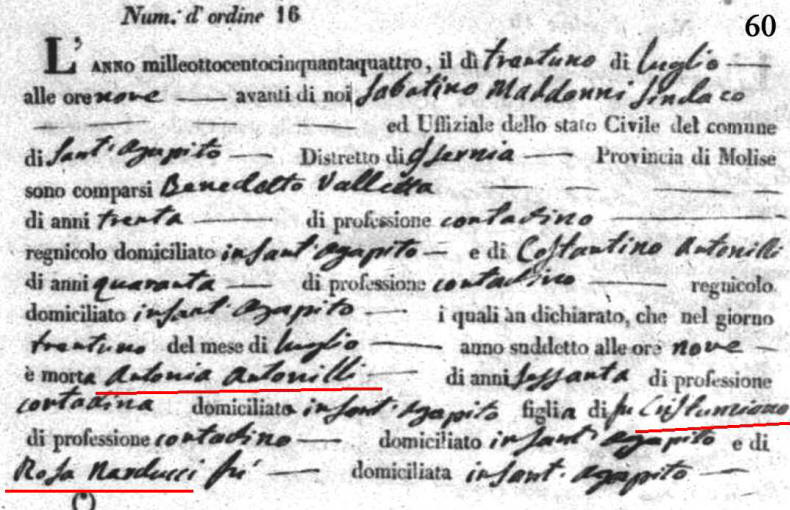 Num. d' ordine 16
60
L' ANNO milleottocentocinquantaquattro, il dì trentuno di luglio
alle ore nove avanti di noi Sabatino Maddonni Sindaco
ed Uffiziale dello stato Civile del comune
di Sant' Agapito Distretto di Isernia Provincia di Molise
sono comparsi Benedetto
di anni trenta di professione contadino
regnicolo domiciliato in Sant' Agapito e di Costantino Antonilli
di anni quaranta di professione contadino regnicolo
domiciliato in Sant' Agapito i quali àn dichiarato, che nel giorno
trentuno del mese di luglio anno suddetto alle ore nove
è morta Antonia Antonilli di anni sessanta di professione
contadina domiciliata in Sant' Agapito figlia di fu
di professione contadino domiciliato in Sant' Agapito e di
Rosa Narducci fu domiciliata in Sant' Agapito
(*)